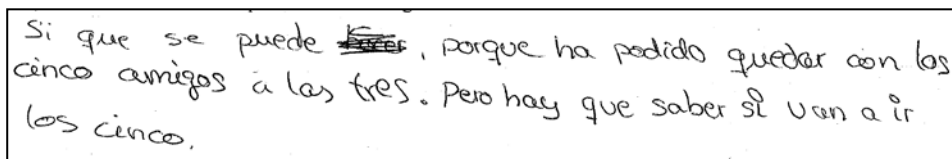 Si que se puede, porque ha podido quedar con los
cinco amigos a las tres. Pero hay que saber si van a ir
los cinco.